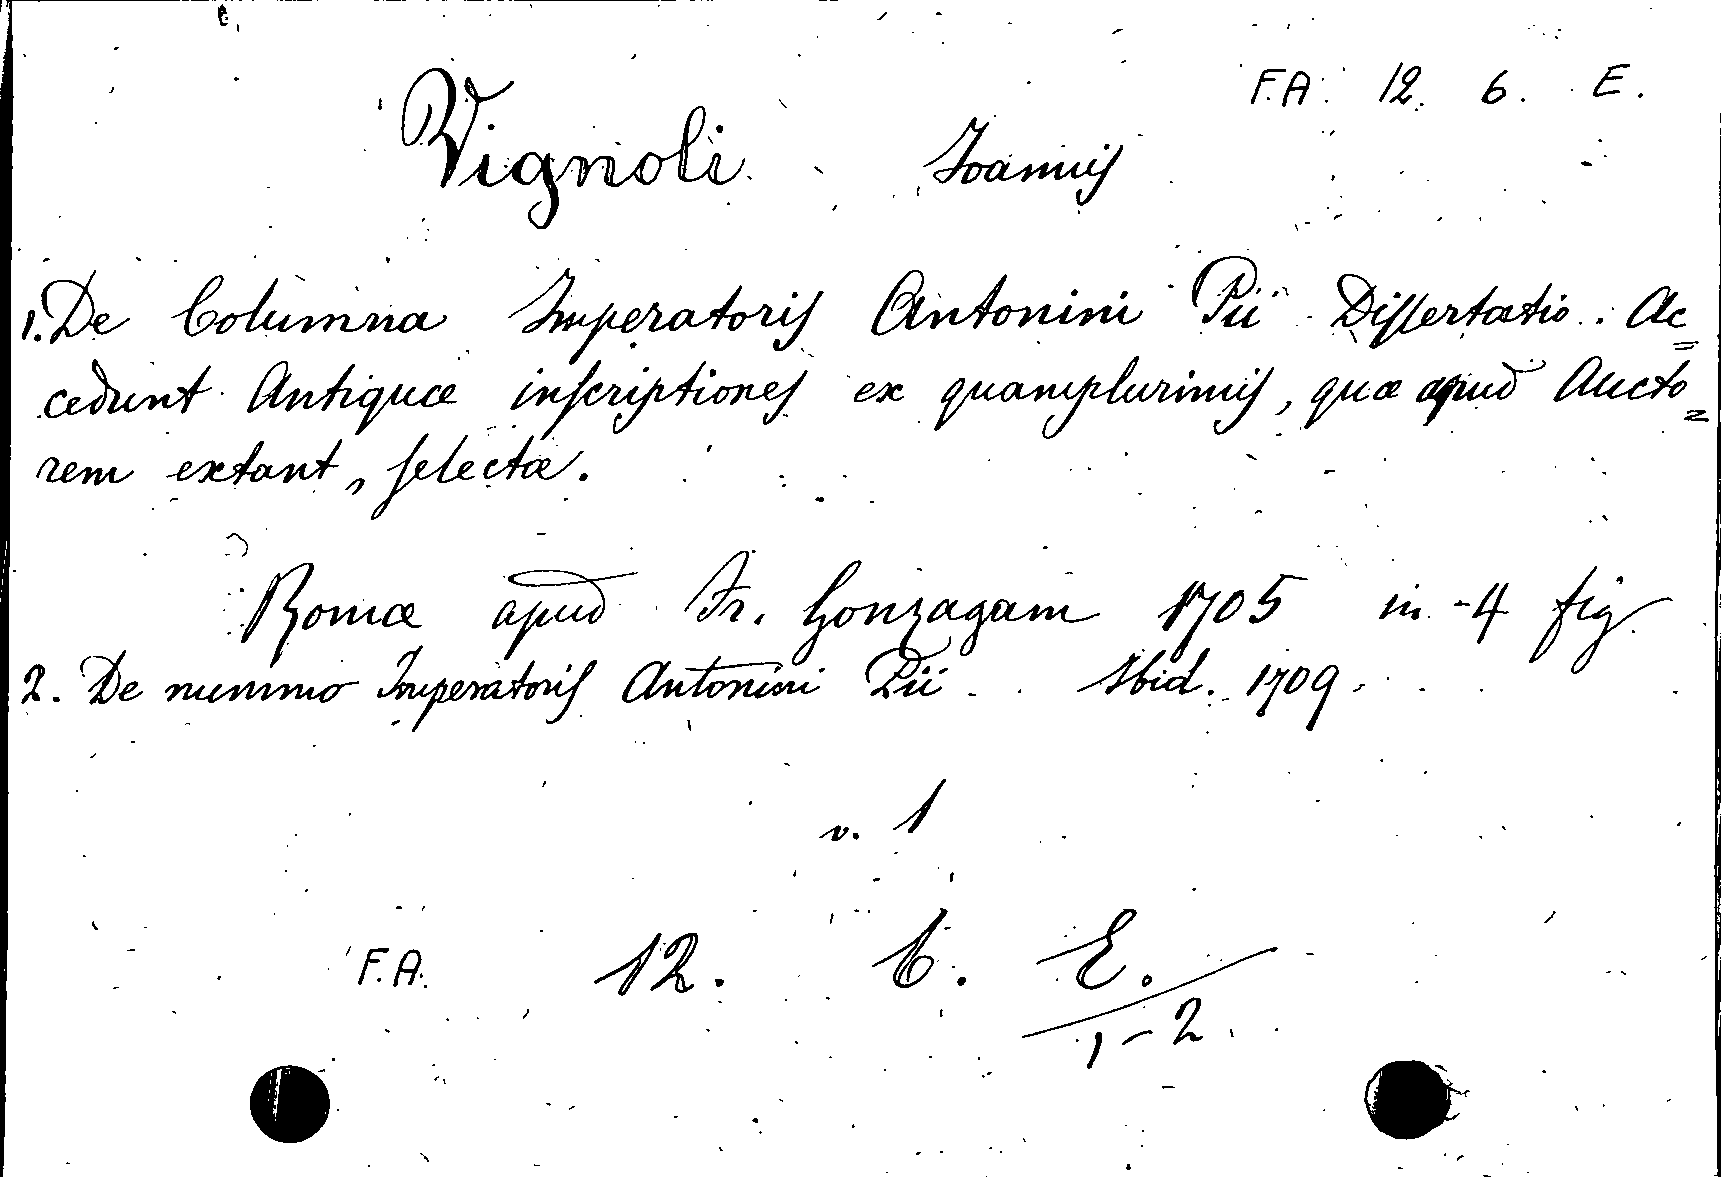 F.A. 12. 6. E.
Vignoli Ioannis
1. De Columna Imperatoris Antonini Pii Dissertatio. Ac=
cedunt Antiquæ inscriptiones ex quamplurimis, quæ apud Aucto=
rem extant, selectæ.
Romæ apud Fr. Gonzagam 1705 in-4 fig.
2. De nummo Imperatoris Antonini Pii Ibid. 1709.
v. 1
F.A. 12. 6. E.
1-2